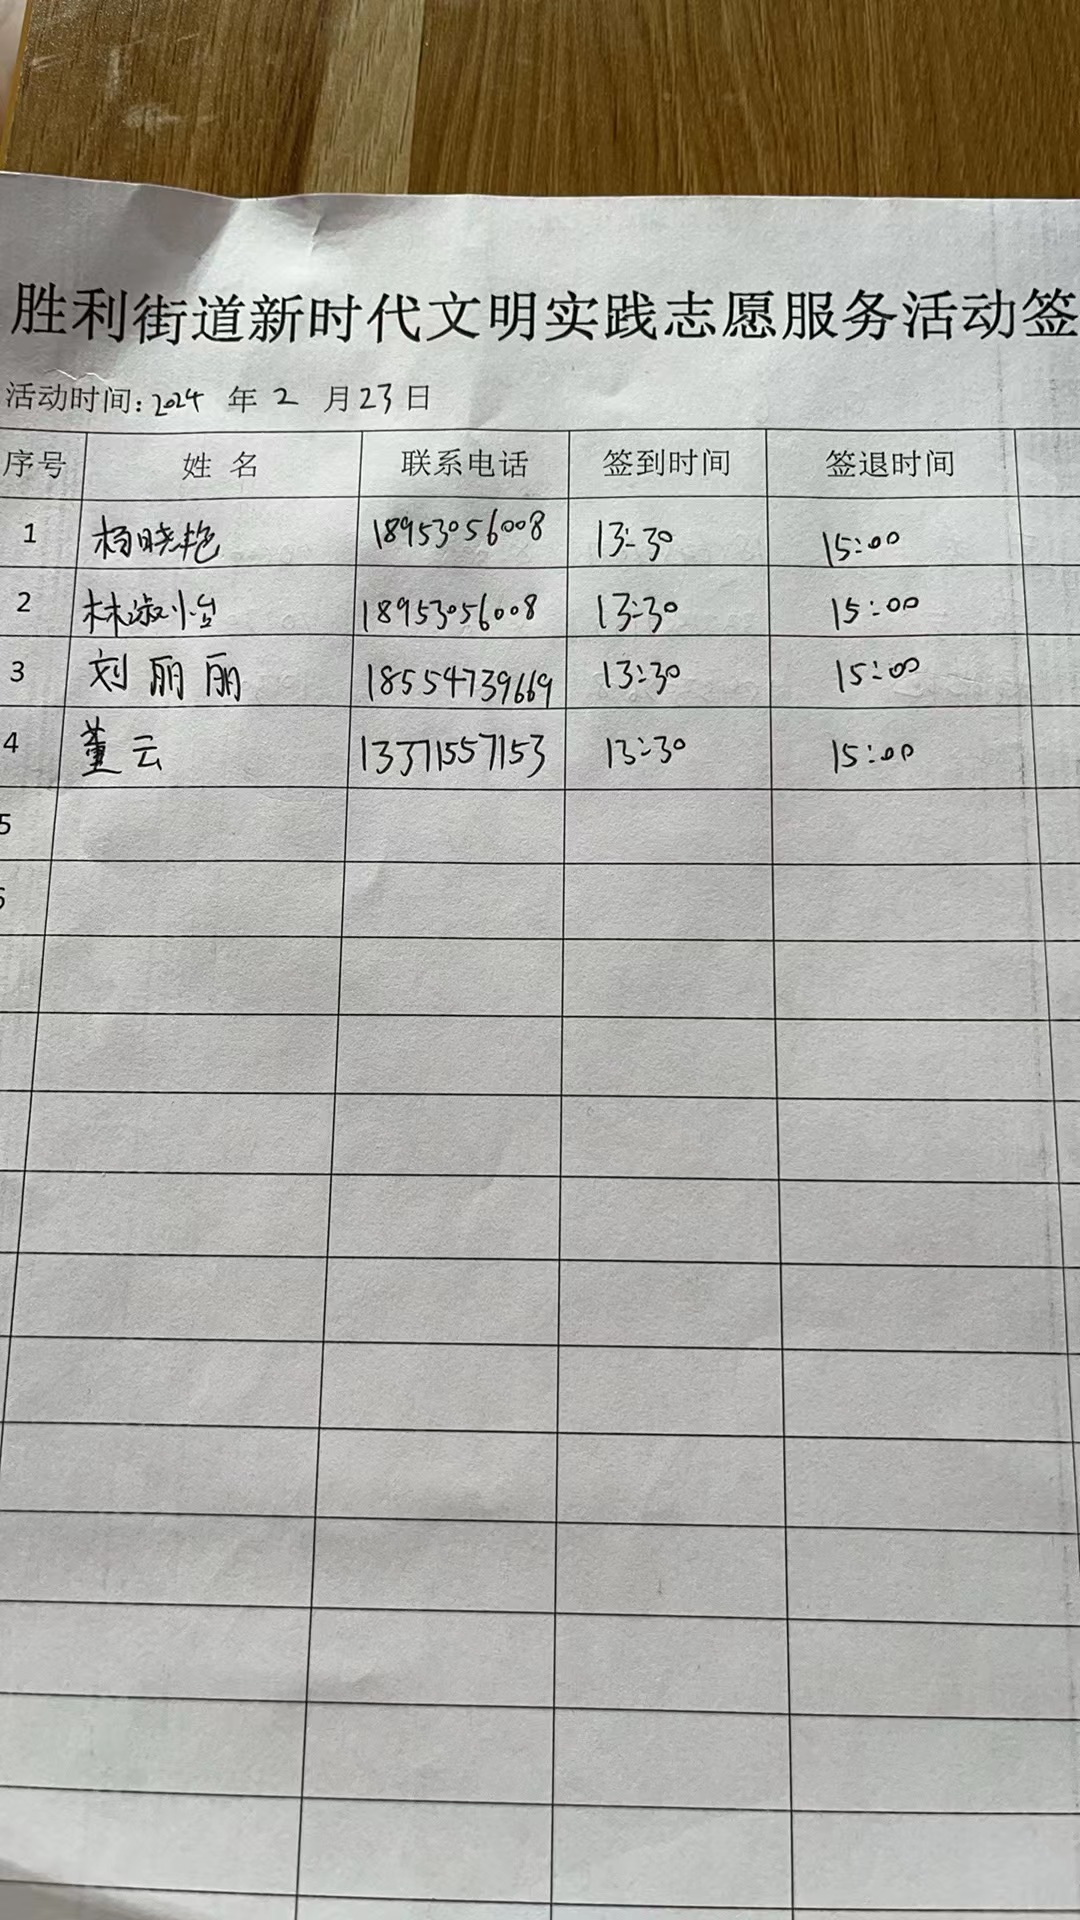 胜利街道新时代文明实践志愿服务活动签
活动时间: 2024 年 2 月 23 日
序号 姓 名 联系电话 签到时间 签退时间
1 杨晓艳 18953056008 13:30 15:00
2 林淑怡 18953056008 13:30 15:00
3 刘丽丽 18554739669 13:30 15:00
4 董云 13371557153 13:30 15:00
5
6